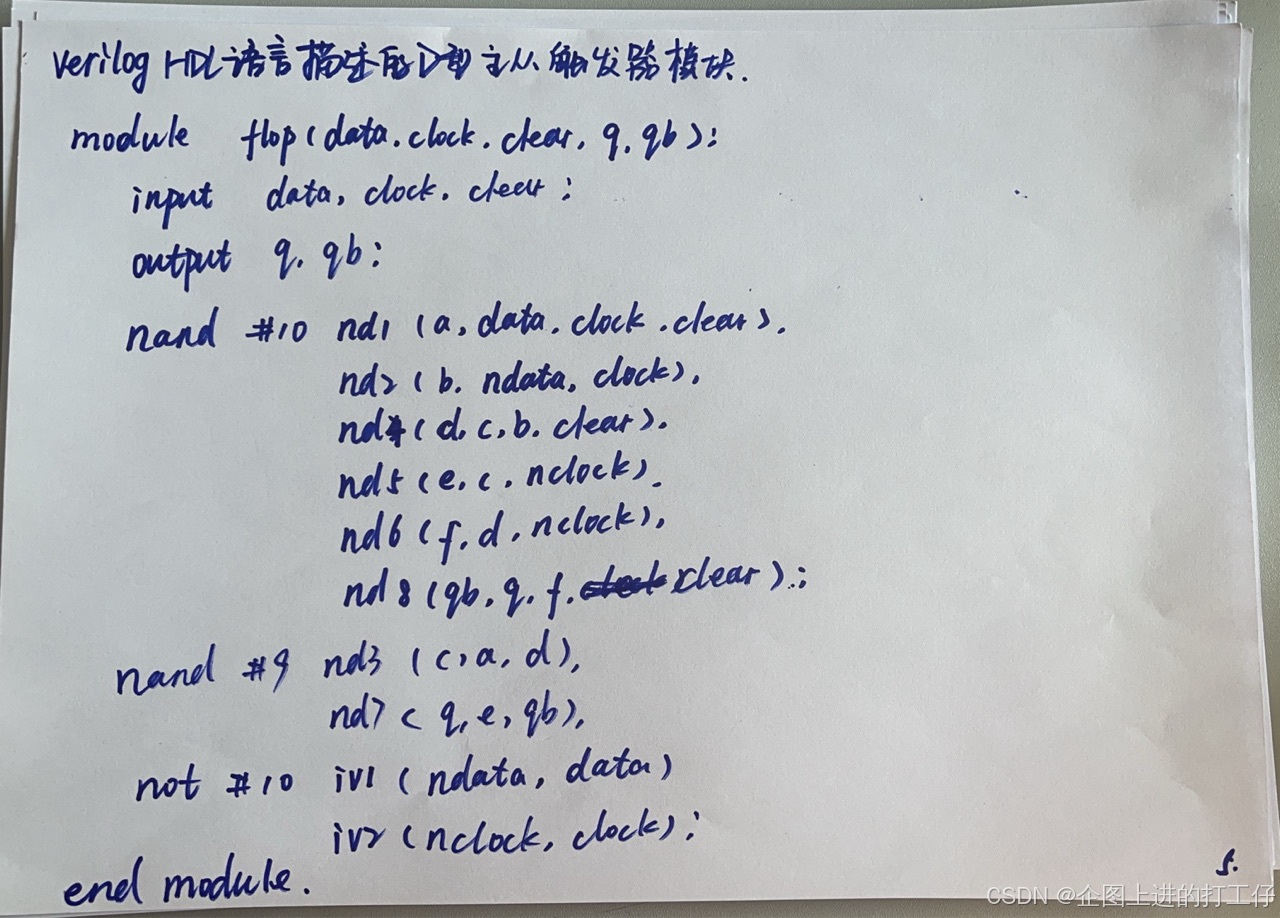 verilog HDL语言描述的D型主从触发器模块.
module flop(data.clock.clear, q, qb);
input data, clock. clear;
output q. qb;
nand #10 nd1 (a, data. clock .clear).
nd2 (b. ndata, clock),
nd4 (d, c, b. clear).
nd5 (e, c, nclock).
nd6 (f, d, nclock),
nd8 (qb, q, f, clear);
nand #9 nd3 (c, a, d),
nd7 ( q, e, qb),
not #10 iv1 (ndata, data)
iv2 (nclock, clock);
end module.
5.
CSDN @企图上进的打工仔